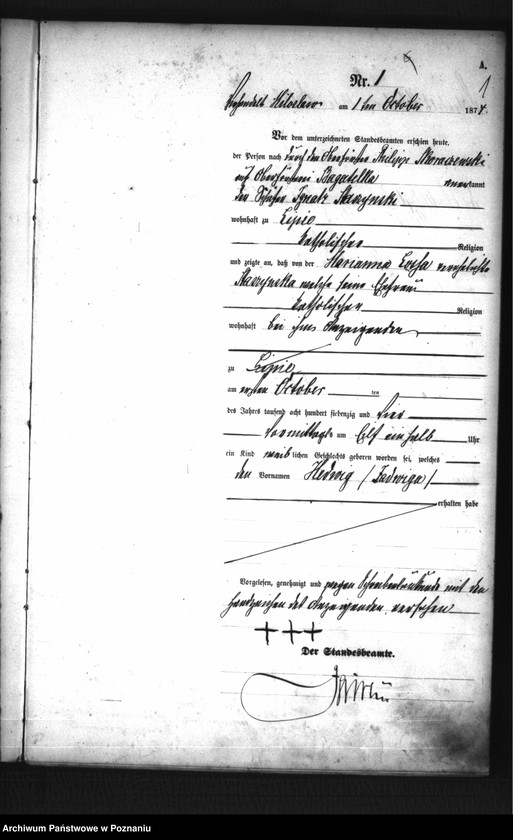 A.
1
Nr. 1
Miloslaw am 1ten October 1874.
Vor dem unterzeichneten Standesbeamten erschien heute,
der Person nach durch den Oberförster Philipp Skoraczewski
auf Oberförsterei Bagatelka anerkannt
der Schäfer Ignatz Skrzynski
wohnhaft zu Lipie
katholischer Religion
und zeigte an, daß von der Marianna verehelichte
Skrzynska welche seine Ehefrau
katholischer Religion
wohnhaft bei ihm Anzeigenden
zu Lipie
am ersten October ten
des Jahres tausend acht hundert siebenzig und vier
Vormittags um Elf einhalb Uhr
ein Kind weiblichen Geschlechts geboren worden sei, welches
den Vornamen Hedwig /Jadwiga/
erhalten habe
Vorgelesen, genehmigt und wegen Schreibensunkunde mit den
Handzeichen des Anzeigenden versehen
+++
Der Standesbeamte.
Archiwum Państwowe w Poznaniu